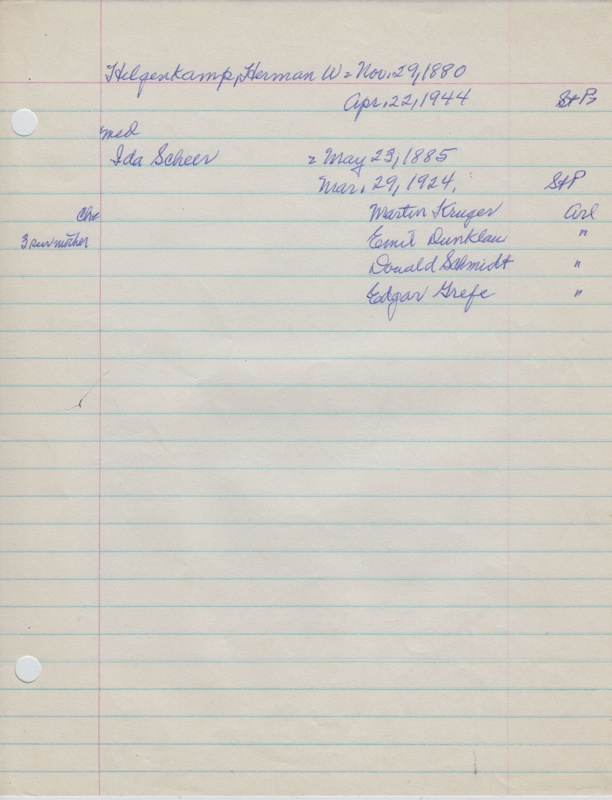 Helgenkamp, Herman W = Nov. 29, 1880
Apr. 22, 1944 St P
med
Ida Scheer = May 23, 1885
Mar. 29, 1924. St P
Chr Martin Kruger Arl
3 sur mother Emil Dunklau "
Donald Schmidt "
Edgar Grefe "